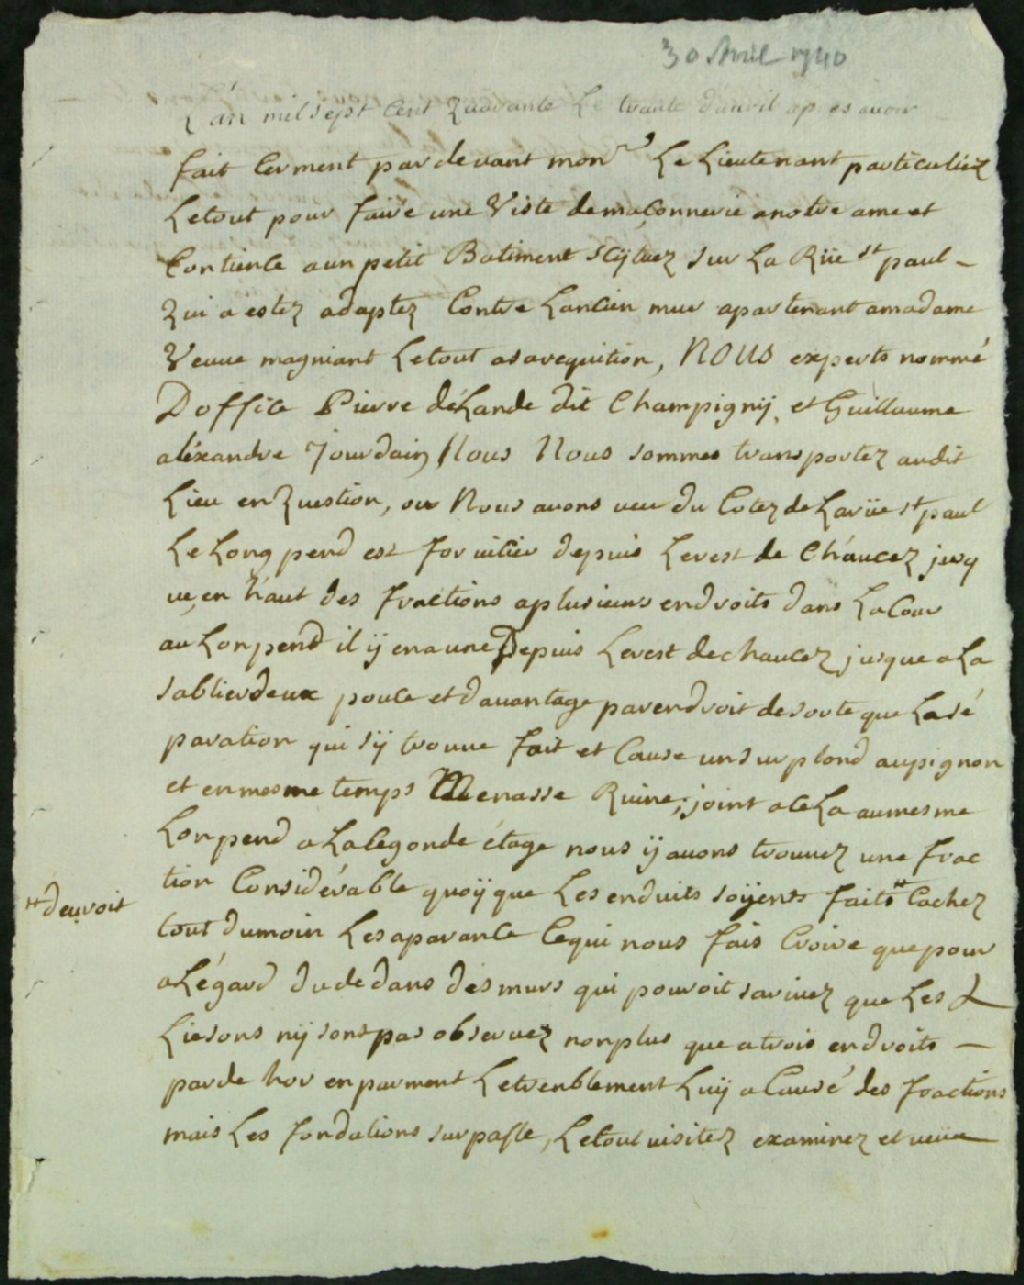 30 Avril 1740
L'an mil sept Cent Quarante Le trante d'auvil apres avoir
fait Cerment par devant monr Le Lieutenant particuliez
Letout pour faire une Viste demaçonnerie anotre ame et
Contience aun petit Batiment scÿtuez sur La Rüe st paul –
Qui a estez adaptez Contre Lancien mur apartenant amadame
Veuue magniant Letout asarequition, NOUS experts nommé
Doffice Pierre déLande dit Champignÿ, et Guillaume
aléxandre Jourdain Nous Nous sommes transportez audit
Lieu en Question, ou Nous avons veu du Cotez de Larüe st paul
Le Long pend est for uilier depuis Lerest de Cháucez jusq
ue, en háut des fractions aplusieurs endroits dans La Cour
au Lonpend il ÿ ena une Depuis Lerest de chaucez jusque a La
sablier deux pouce et dauantage par endroit de sorte que La sé
paration qui s'ÿ trouue fait et Cause un surplond aupignon
et en mesme temps Menasse Ruine; joint a ceLa aumesme
Lonpend a La segonde étage nous ÿ auons trouuez une frac
tion Considérable quoÿ que Les enduits soÿents faits # Cachez
# deuvoit
tout dumoin Les aparance Cequi nous fais Croire que pour
a Légard dudedans des murs qui pouroit sarivez que Les L
Liesons nÿ sont pas obseruez nonplus que a trois endroits –
par de hor en parment Letrenblement Luÿ a Causé des fractions
mais Les fondations surpasse, Letout visitez examinez et veüe